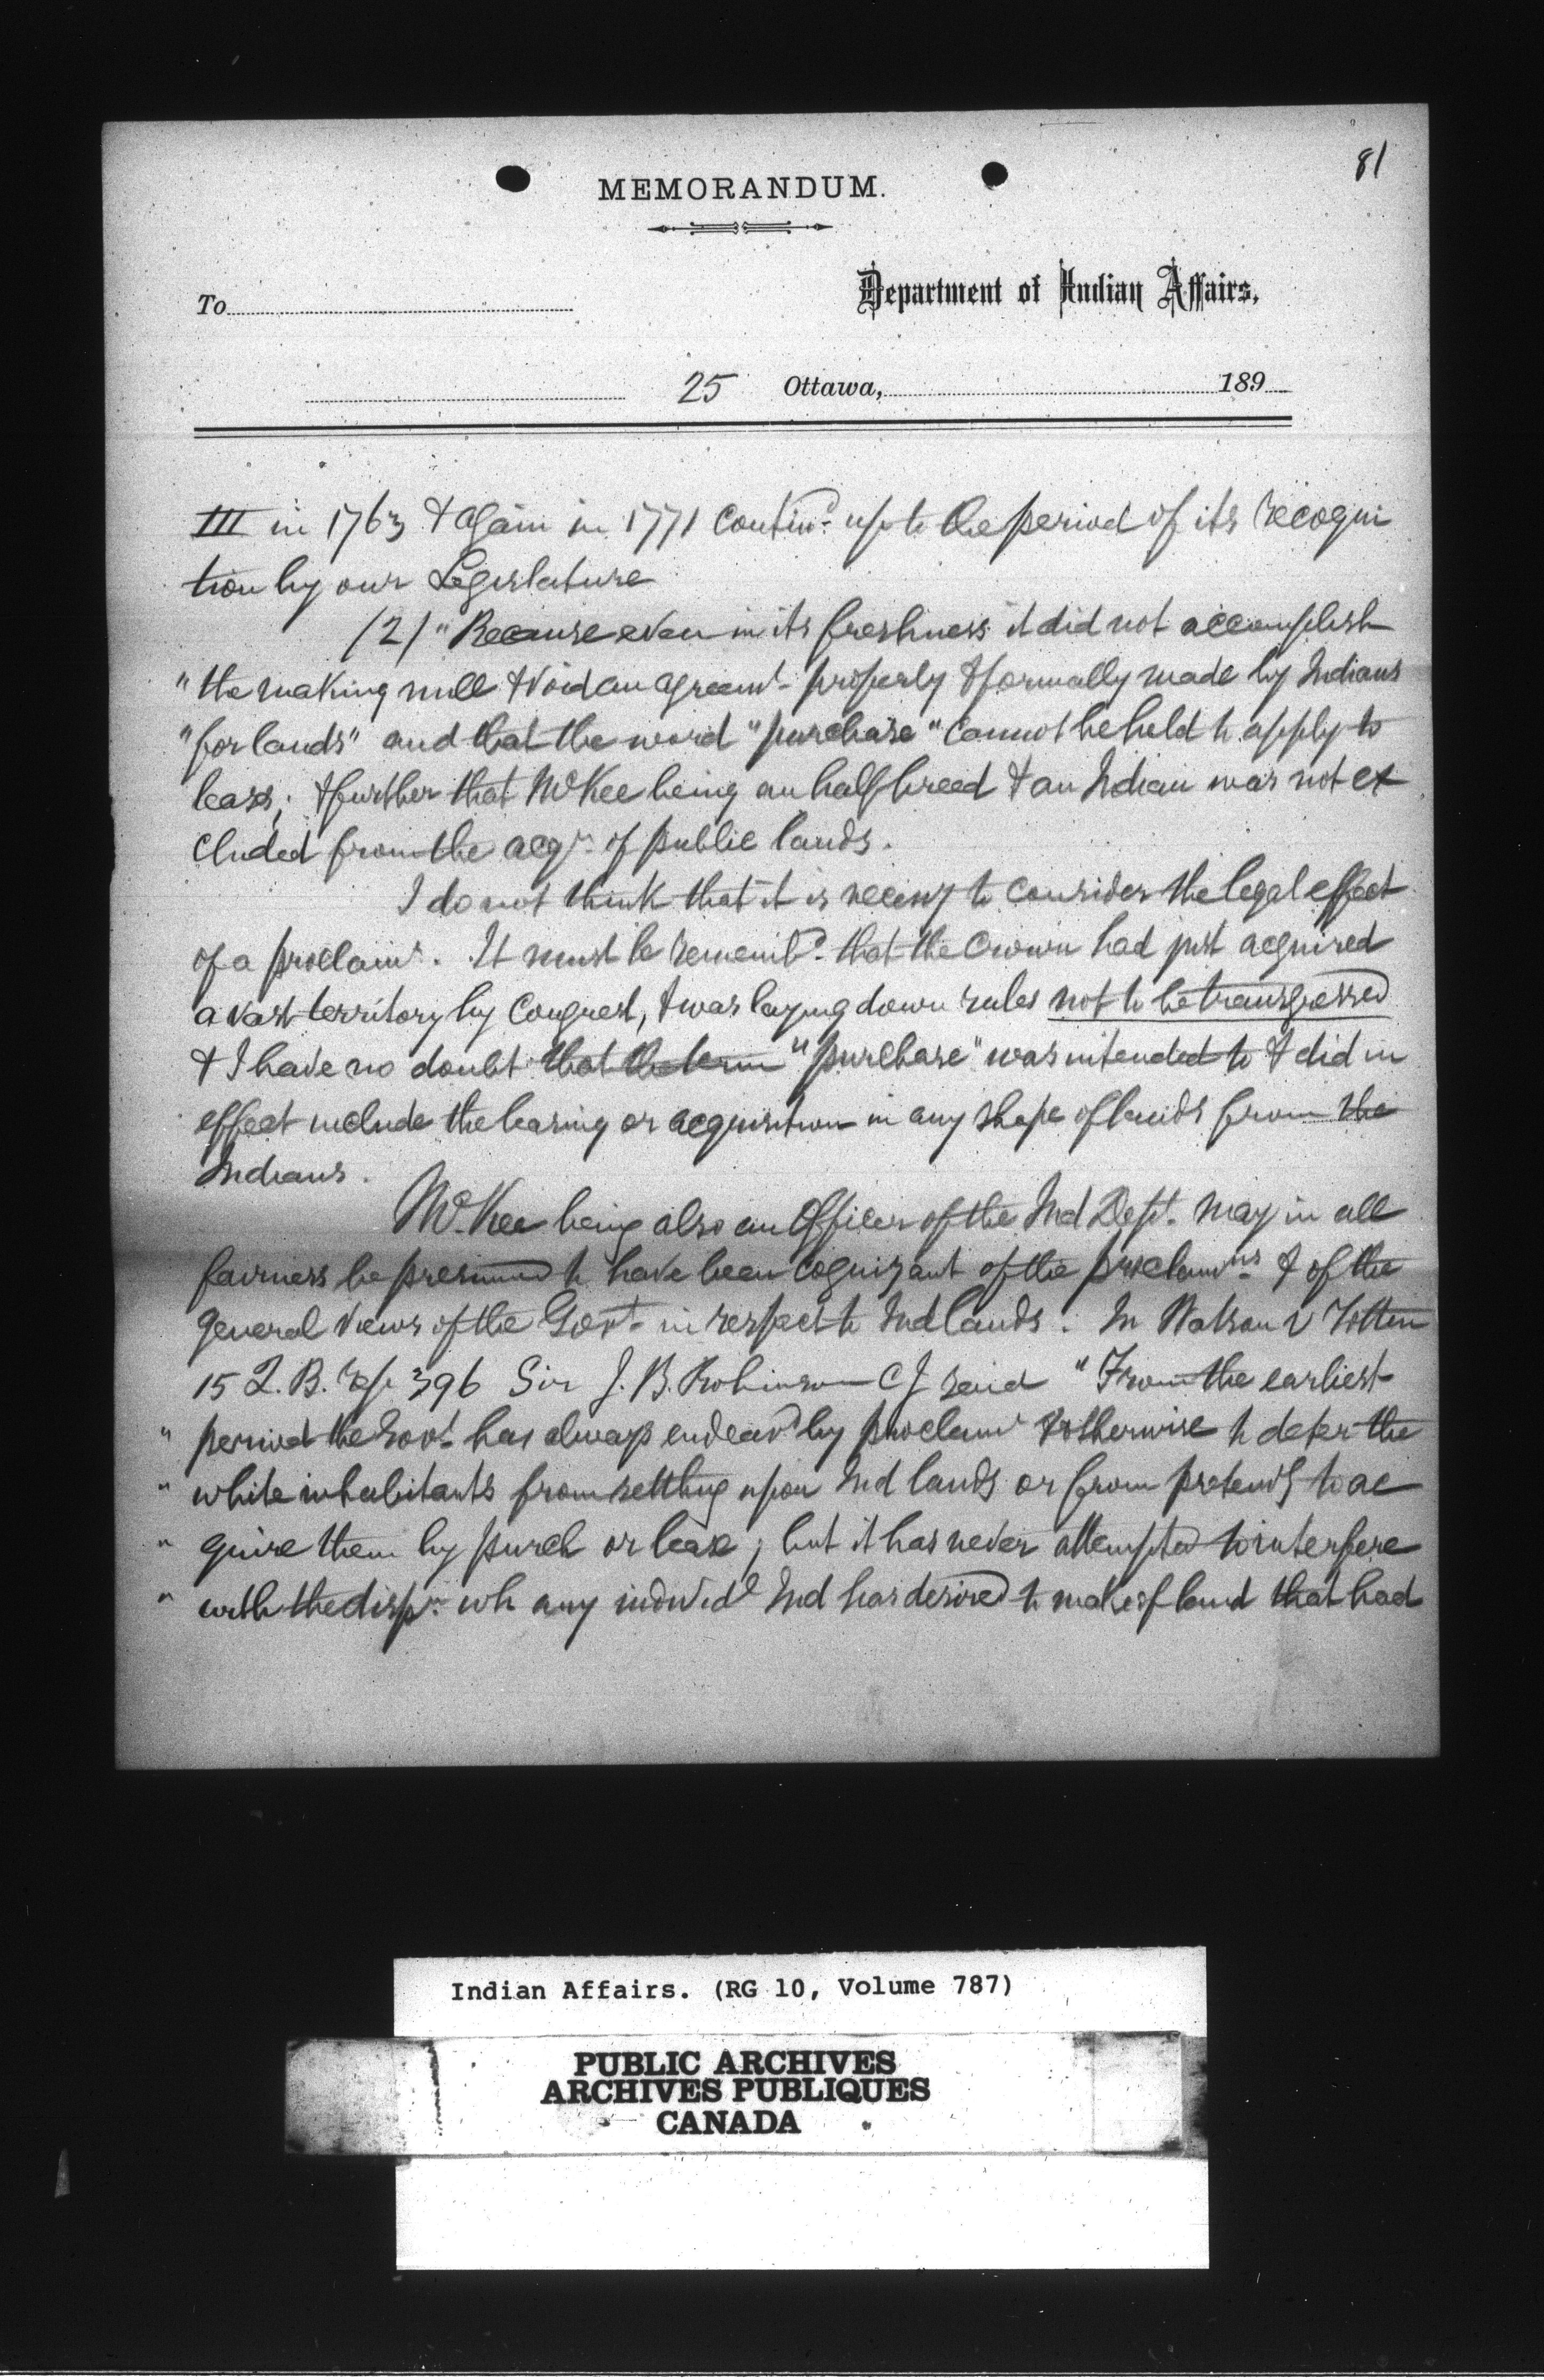 81
MEMORANDUM.
Department of Indian Affairs,
To
25 Ottawa, 189
III in 1763 & again in 1771 contind. up to the period of its recogni
tion by our Legislature
(2) "Because even in its freshness it did not accomplish
"the making null & void an agreemt. properly & formally made by Indians
"for lands" and that the word "purchase" cannot be held to apply to
lease; & further that McKee being an half breed & an Indian was not ex
cluded from the acqn. of public lands.
I do not think that it is necessy to consider the legal effect
of a proclamn. It must be rememb'd. that the Crown had just acquired
a vast territory by Conquest, & was laying down rules not to be transgressed
& I have no doubt that the term "purchase" was intended to & did in
effect include the leasing or acquisition in any shape of lands from the
Indians.
McKee being also an Officer of the Ind Dept. may in all
fairness be presumed to have been cognizant of the proclamns. & of the
general views of the Govt. in respect to Ind lands. In Watson v Totten
15 Q.B. rep 396 Sir J.B. Robinson CJ said "From the earliest
" period the Govt. has always endeavd by proclamn & otherwise to deter the
" white inhabitants from settling upon Ind lands or from pretendg to ac
" quire them by purch or lease; but it has never attempted to interfere
" with the dispn. wh any individl Ind has desired to make of land that had
Indian Affairs. (RG 10, Volume 787)
PUBLIC ARCHIVES
ARCHIVES PUBLIQUES
CANADA